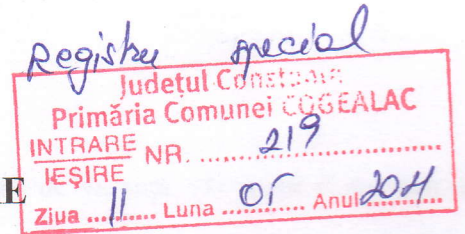 Registru special
Județul Constanța
Primăria Comunei COGEALAC
INTRARE
IEȘIRE NR. ........ 219 ........
E
Ziua .. 11 .. Luna .. 05 .. Anul 2011